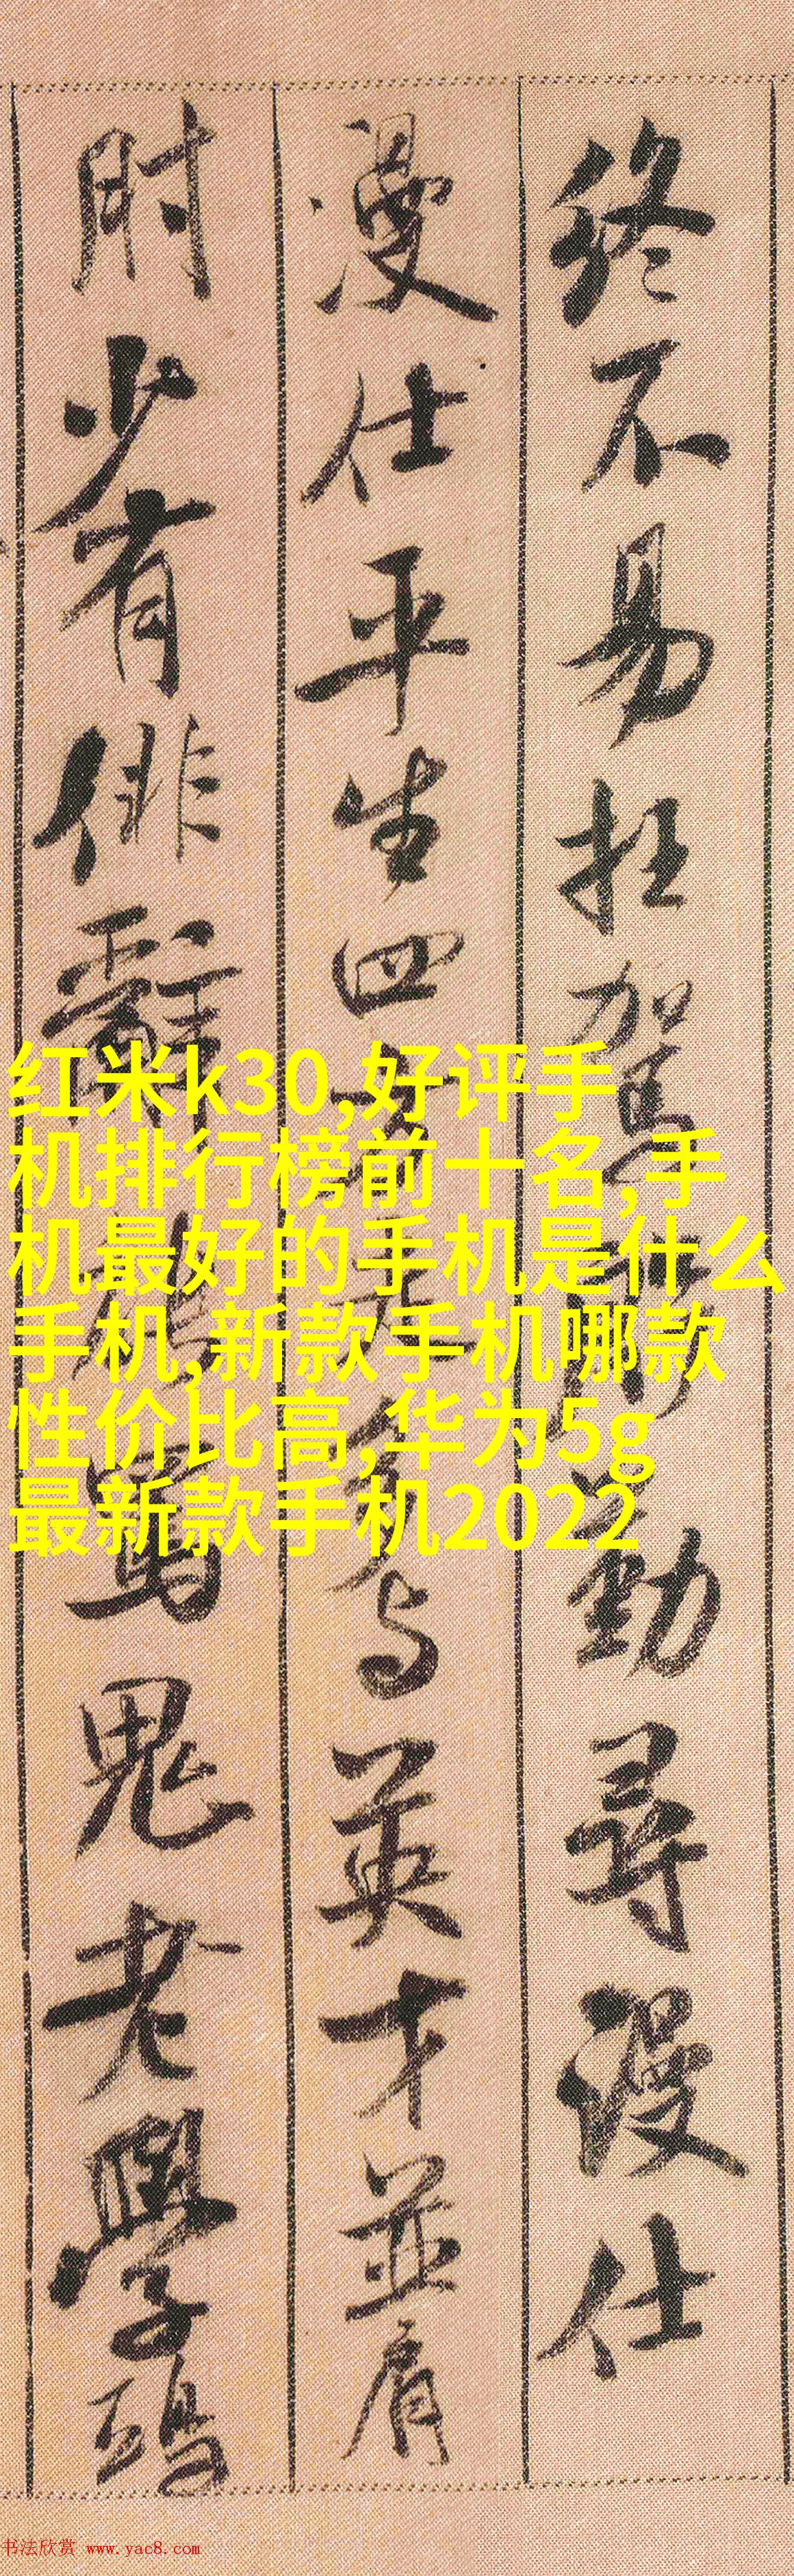 終不易枉駕勤尋漫仕
漫仕平生四方走多与英才並肩
肘少有俳辭能罵鬼老學鴟
红米k30,好评手
机排行榜前十名,手
机最好的手机是什么
手机,新款手机哪款
性价比高,华为5g
最新款手机2022
书法欣赏 www.yac8.com